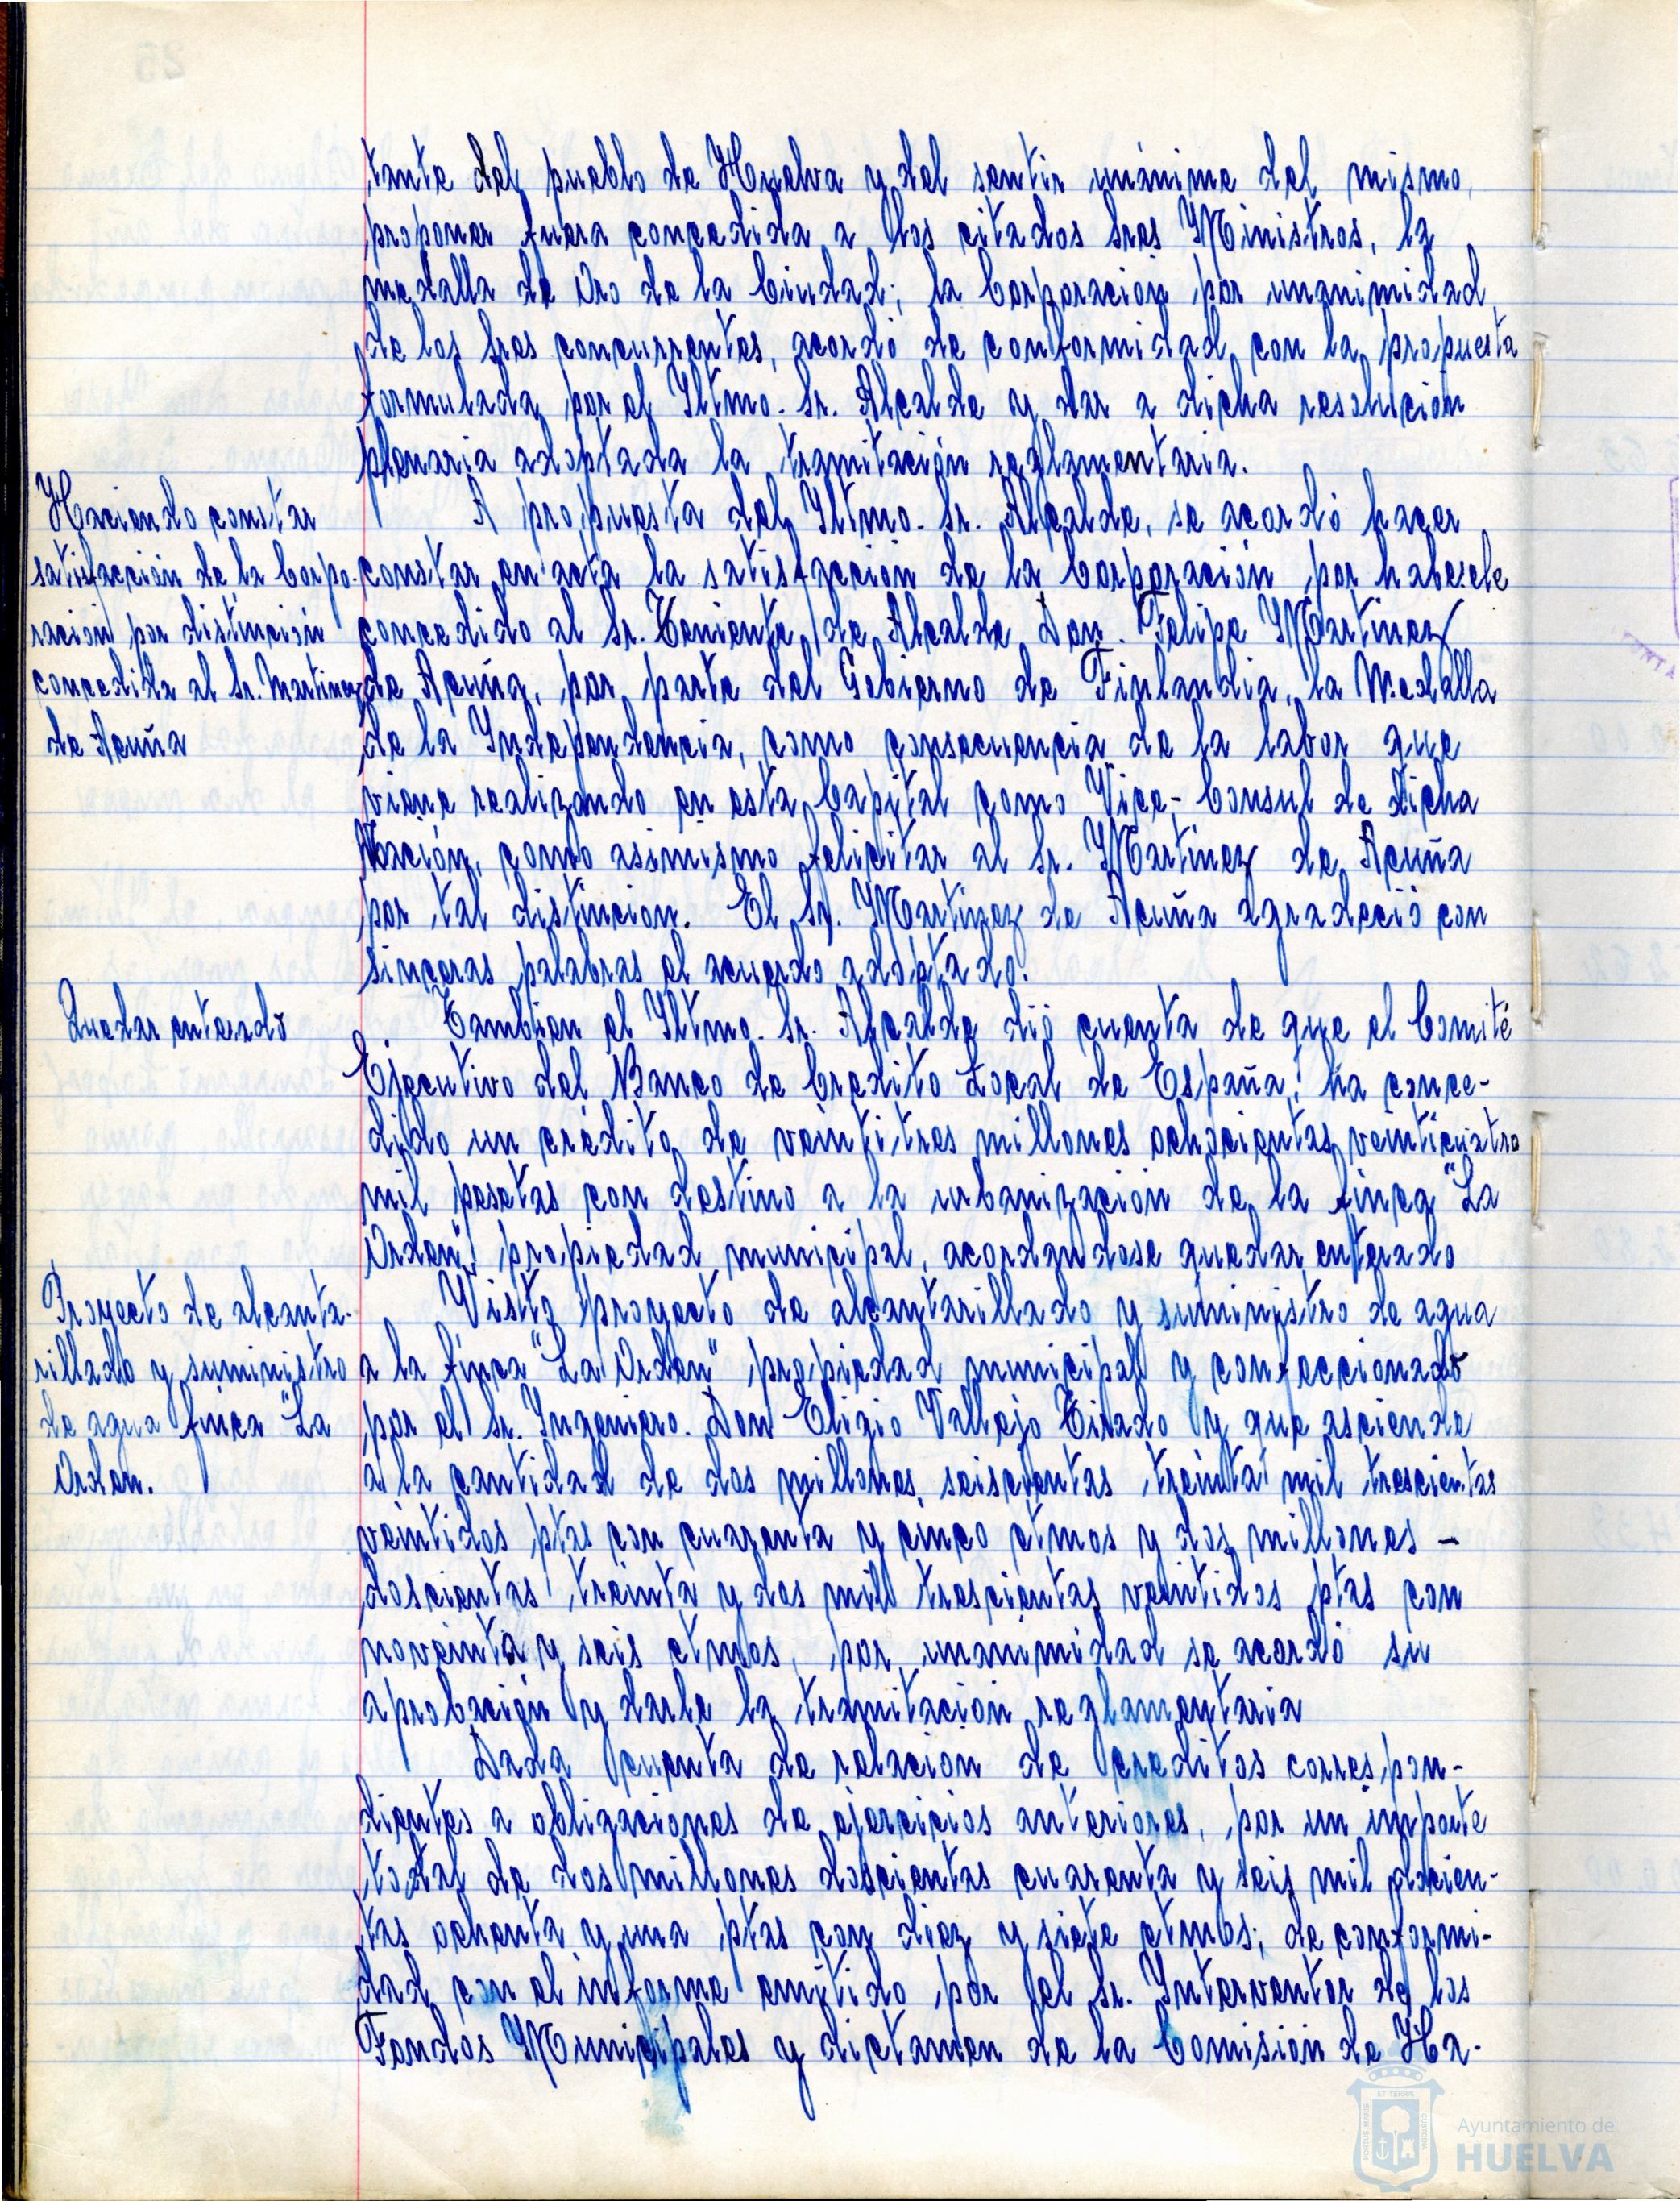 tante del pueblo de Huelva y del sentir unánime del mismo,
proponer fuera concedida a los citados Sres Ministros, la
medalla de Oro de la Ciudad; la Corporación por unanimidad
de los Sres concurrentes, acordó de conformidad con la propuesta
formulada por el Iltmo. Sr. Alcalde y dar a dicha resolución
plenaria adoptada la tramitación reglamentaria.
Haciendo constar
satisfacción de la Corpo-
ración por distinción
concedida al Sr. Martinez
de Acuña
A propuesta del Iltmo. Sr. Alcalde, se acordó hacer
constar en acta la satisfacción de la Corporación por habersele
concedido al Sr. Teniente de Alcalde Don. Felipe Martinez
de Acuña, por parte del Gobierno de Finlandia, la Medalla
de la Independencia, como consecuencia de la labor que
viene realizando en esta Capital como Vice-Consul de dicha
Nación, como asimismo felicitar al Sr. Martinez de Acuña
por tal distincion. El Sr. Martinez de Acuña agradeció con
sinceras palabras el acuerdo adoptado.
Quedar enterado
Tambien el Iltmo. Sr. Alcalde dió cuenta de que el Comité
Ejecutivo del Banco de Credito Local de España, ha conce-
dido un crédito de veintitres millones ochocientas veinticuatro
mil pesetas con destino a la urbanización de la finca "La
Orden", propiedad municipal, acordandose quedar enterado
Proyecto de alcanta-
rillado y suministro
de agua finca "La
Orden.
Visto proyecto de alcantarillado y suministro de agua
a la finca "La Orden" propiedad municipal y confeccionado
por el Sr. Ingeniero. Don Eligio Vallejo Tirado y que asciende
a la cantidad de dos millones, seiscientas treinta mil trescientas
veintidos ptas con cuarenta y cinco ctmos y dos millones -
doscientas treinta y dos mil trescientas veintidos ptas con
noventa y seis ctmos, por unanimidad se acordó su
aprobación y darle la tramitacion reglamentaria
Dada cuenta de relacion de creditos correspon-
dientes a obligaciones de ejercicios anteriores, por un importe
total de dos millones doscientas cuarenta y seis mil
tas ochenta y una ptas con diez y siete ctmos; de conformi-
dad con el informe emitido por el Sr. Interventor de los
Fondos Municipales y dictamen de la Comisión de Ha-
Ayuntamiento de
HUELVA